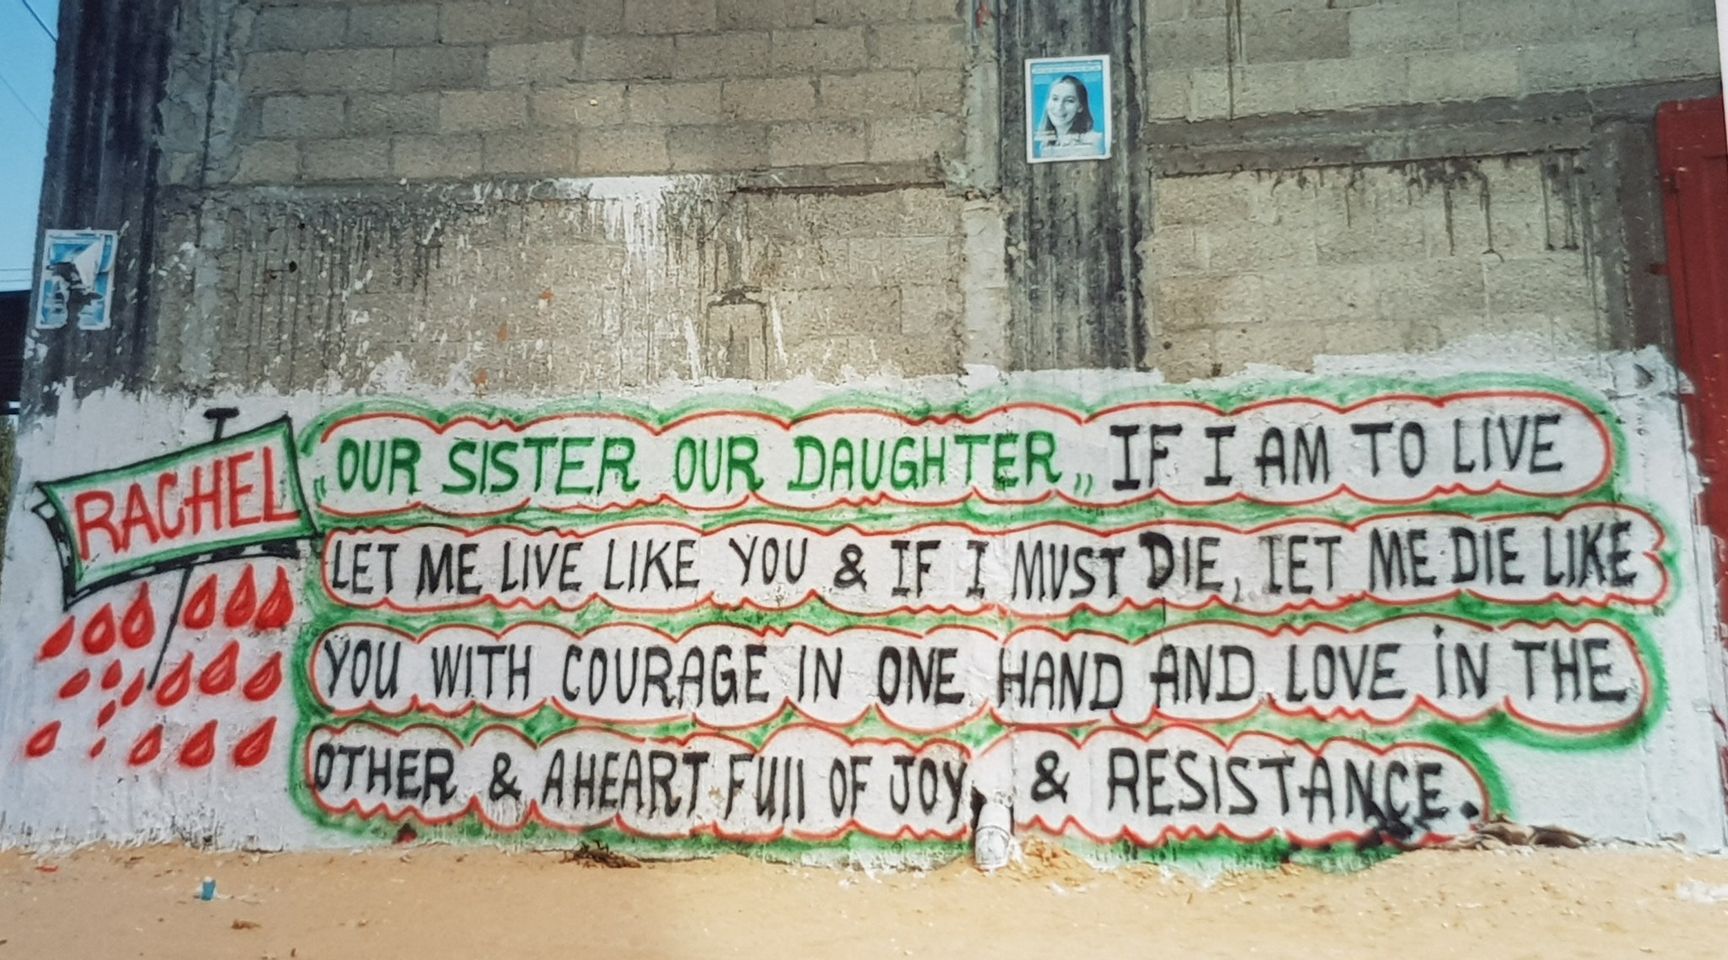 RACHEL
„OUR SISTER OUR DAUGHTER„ IF I AM TO LIVE
LET ME LIVE LIKE YOU & IF I MUST DIE, LET ME DIE LIKE
YOU WITH COURAGE IN ONE HAND AND LOVE iN THE
OTHER & A HEART FUll OF JOY, & RESISTANCE.